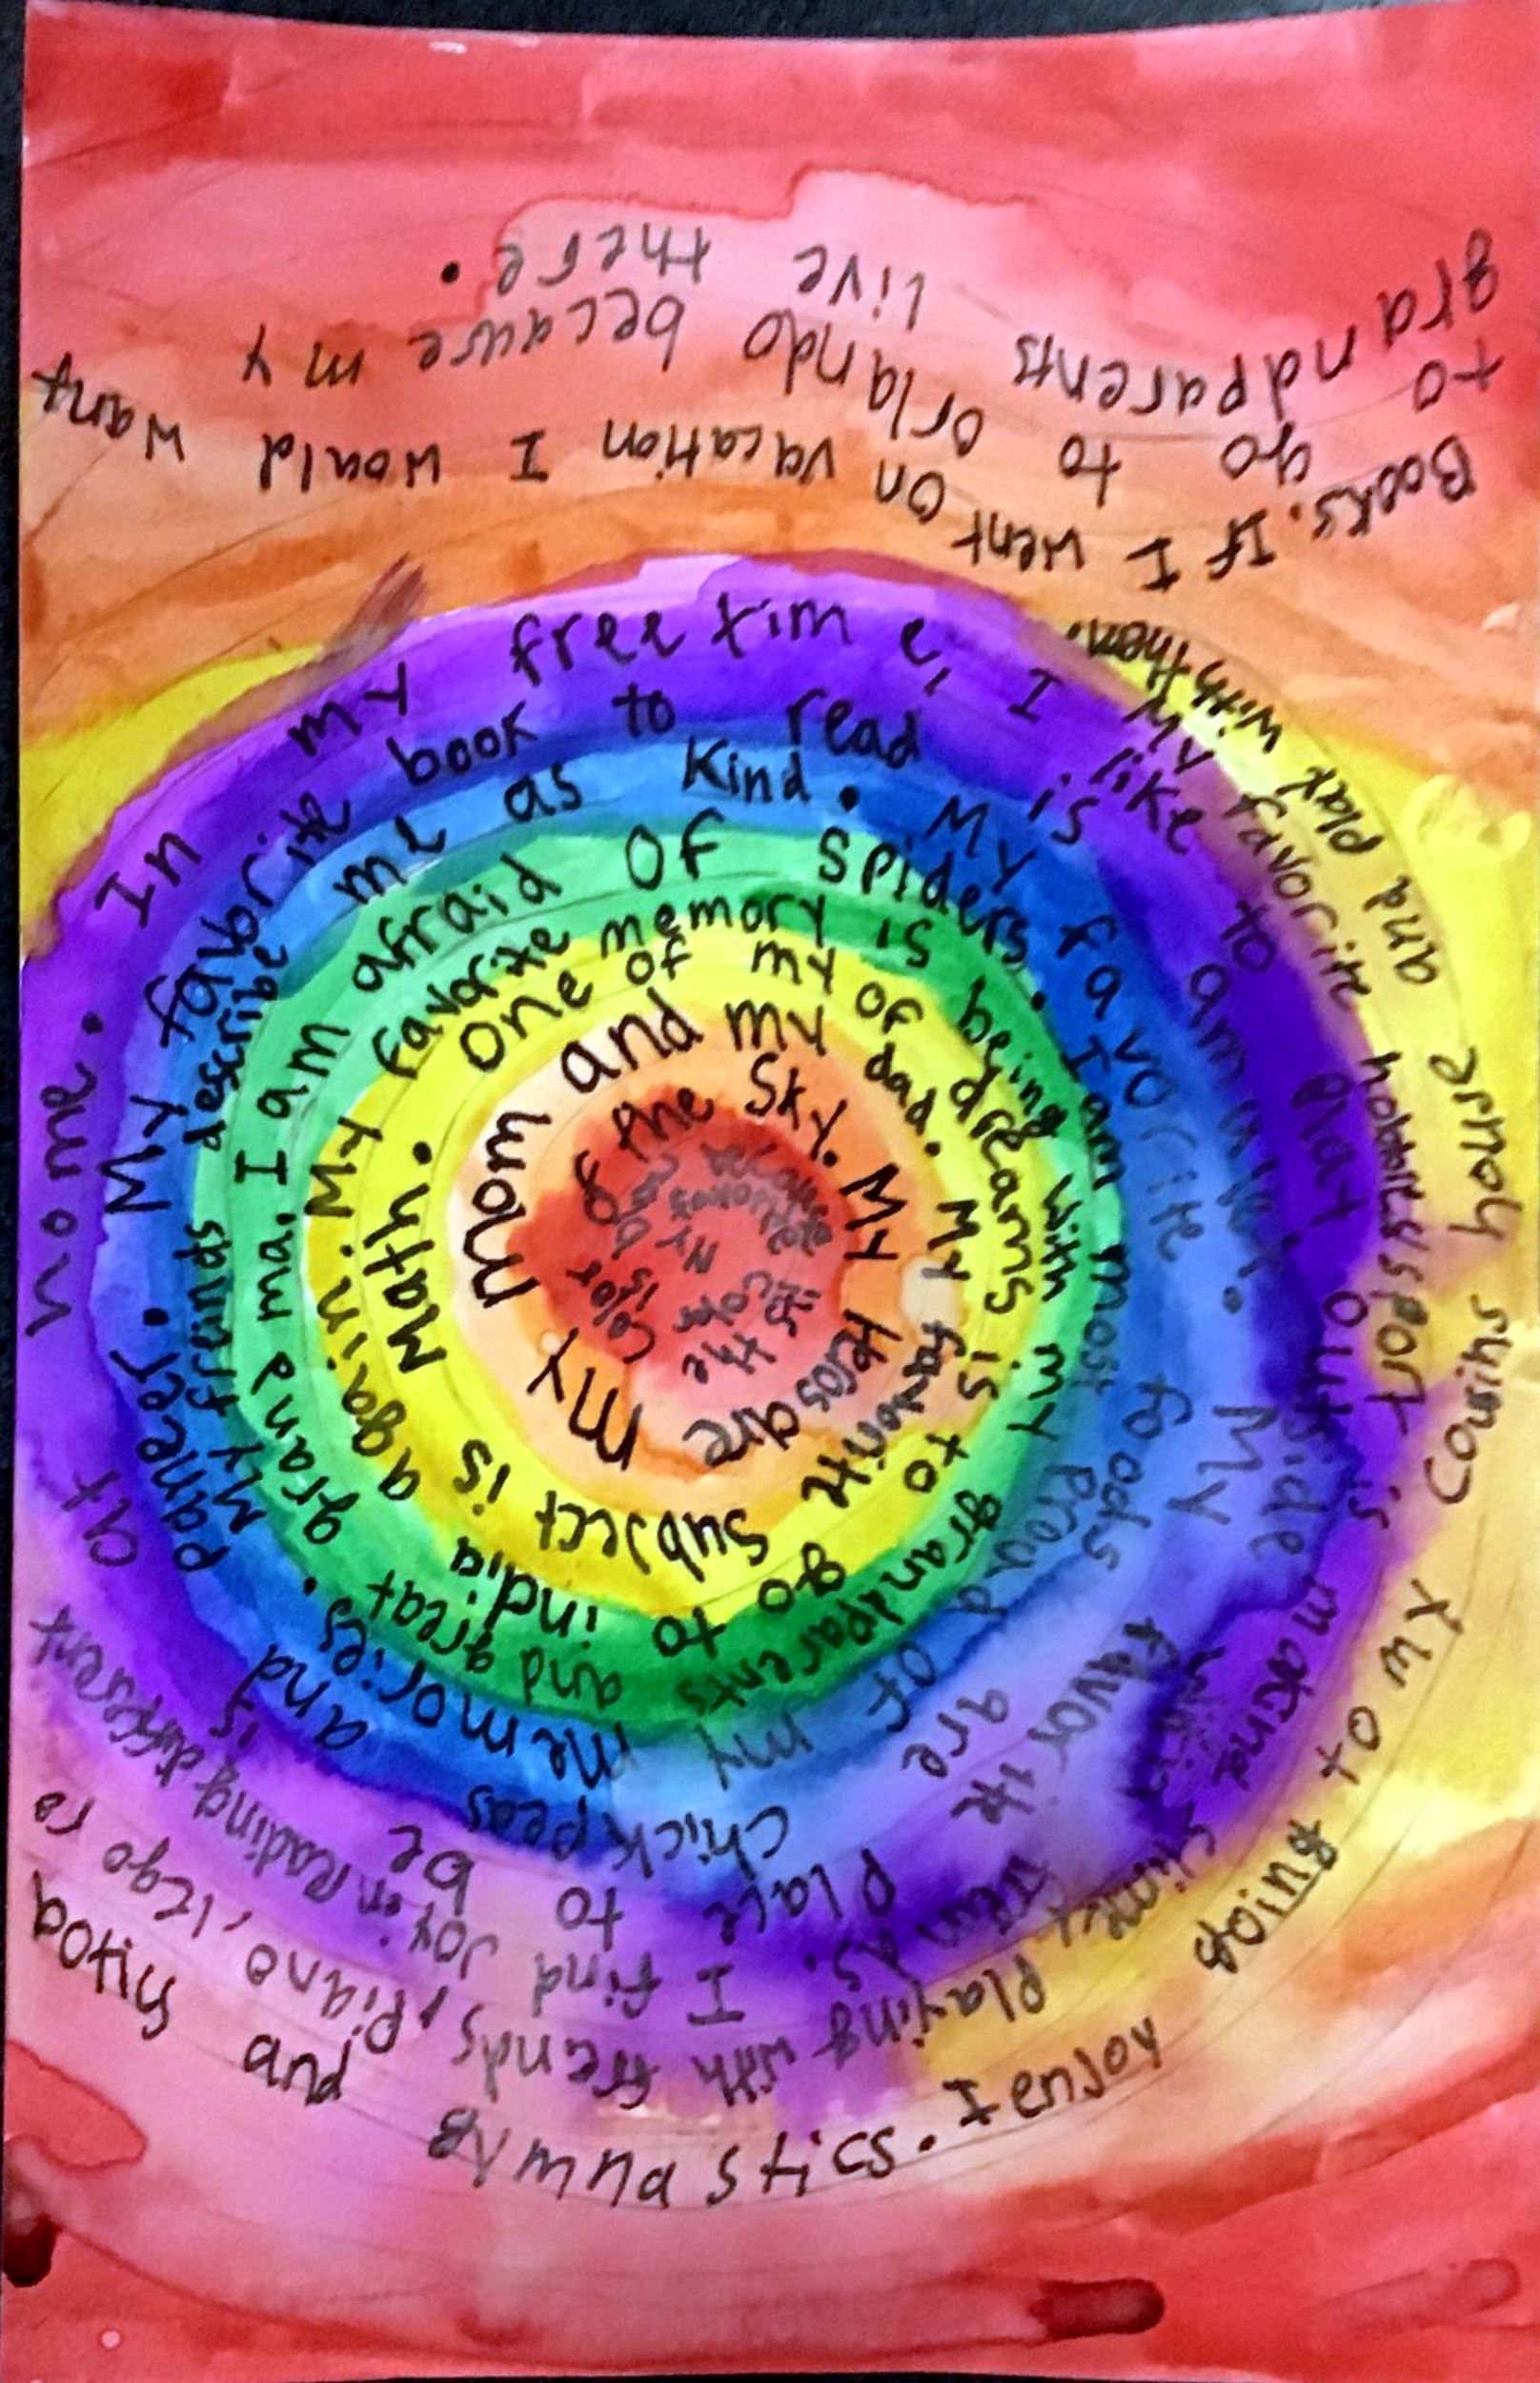 color of the Sky.
My heros are my mom and my dad.
My favorite subject is Math.
One of my of dreams is to go to india again.
My favorite memory is being with my grandparents and great grand ma.
I am afraid of spiders.
I am most proud of my memories.
My freinds describe me as kind.
My favorite foods are chickpeas and paneer.
My favorite book to read is amulet.
My favorite place to be is at home.
In my free time, I like to play outside making
I find joy in Reading different Books.
My favorite hobbies/sport is playing with friends, piano, lego ro botics and gymnastics.
I enjoy going to my cousins house and play with them.
If I went on vacation I would want to go to orlando because my grandparents live there.